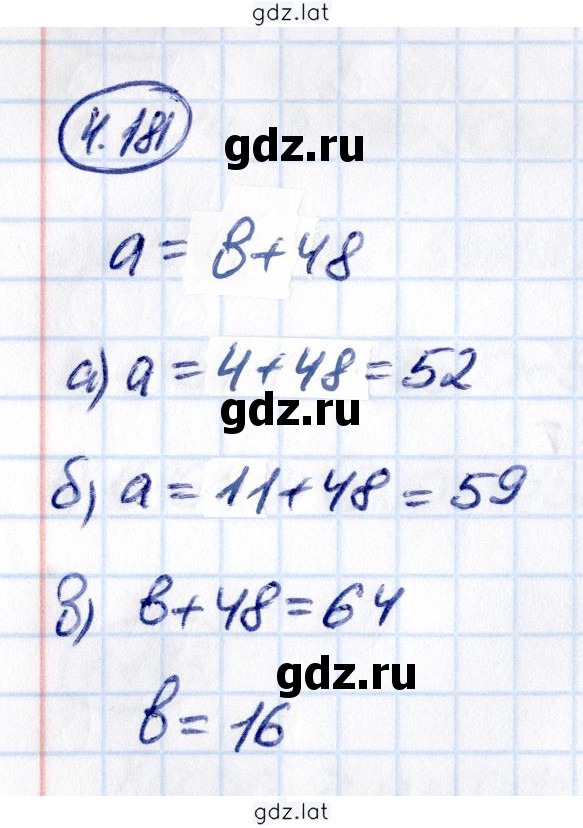 gdz.lat
4.181
gdz.ru
a = в + 48
а) a = 4 + 48 = 52
gdz.ru
б) a = 11 + 48 = 59
в) в + 48 = 64
gdz.ru
в = 16
gdz.lat